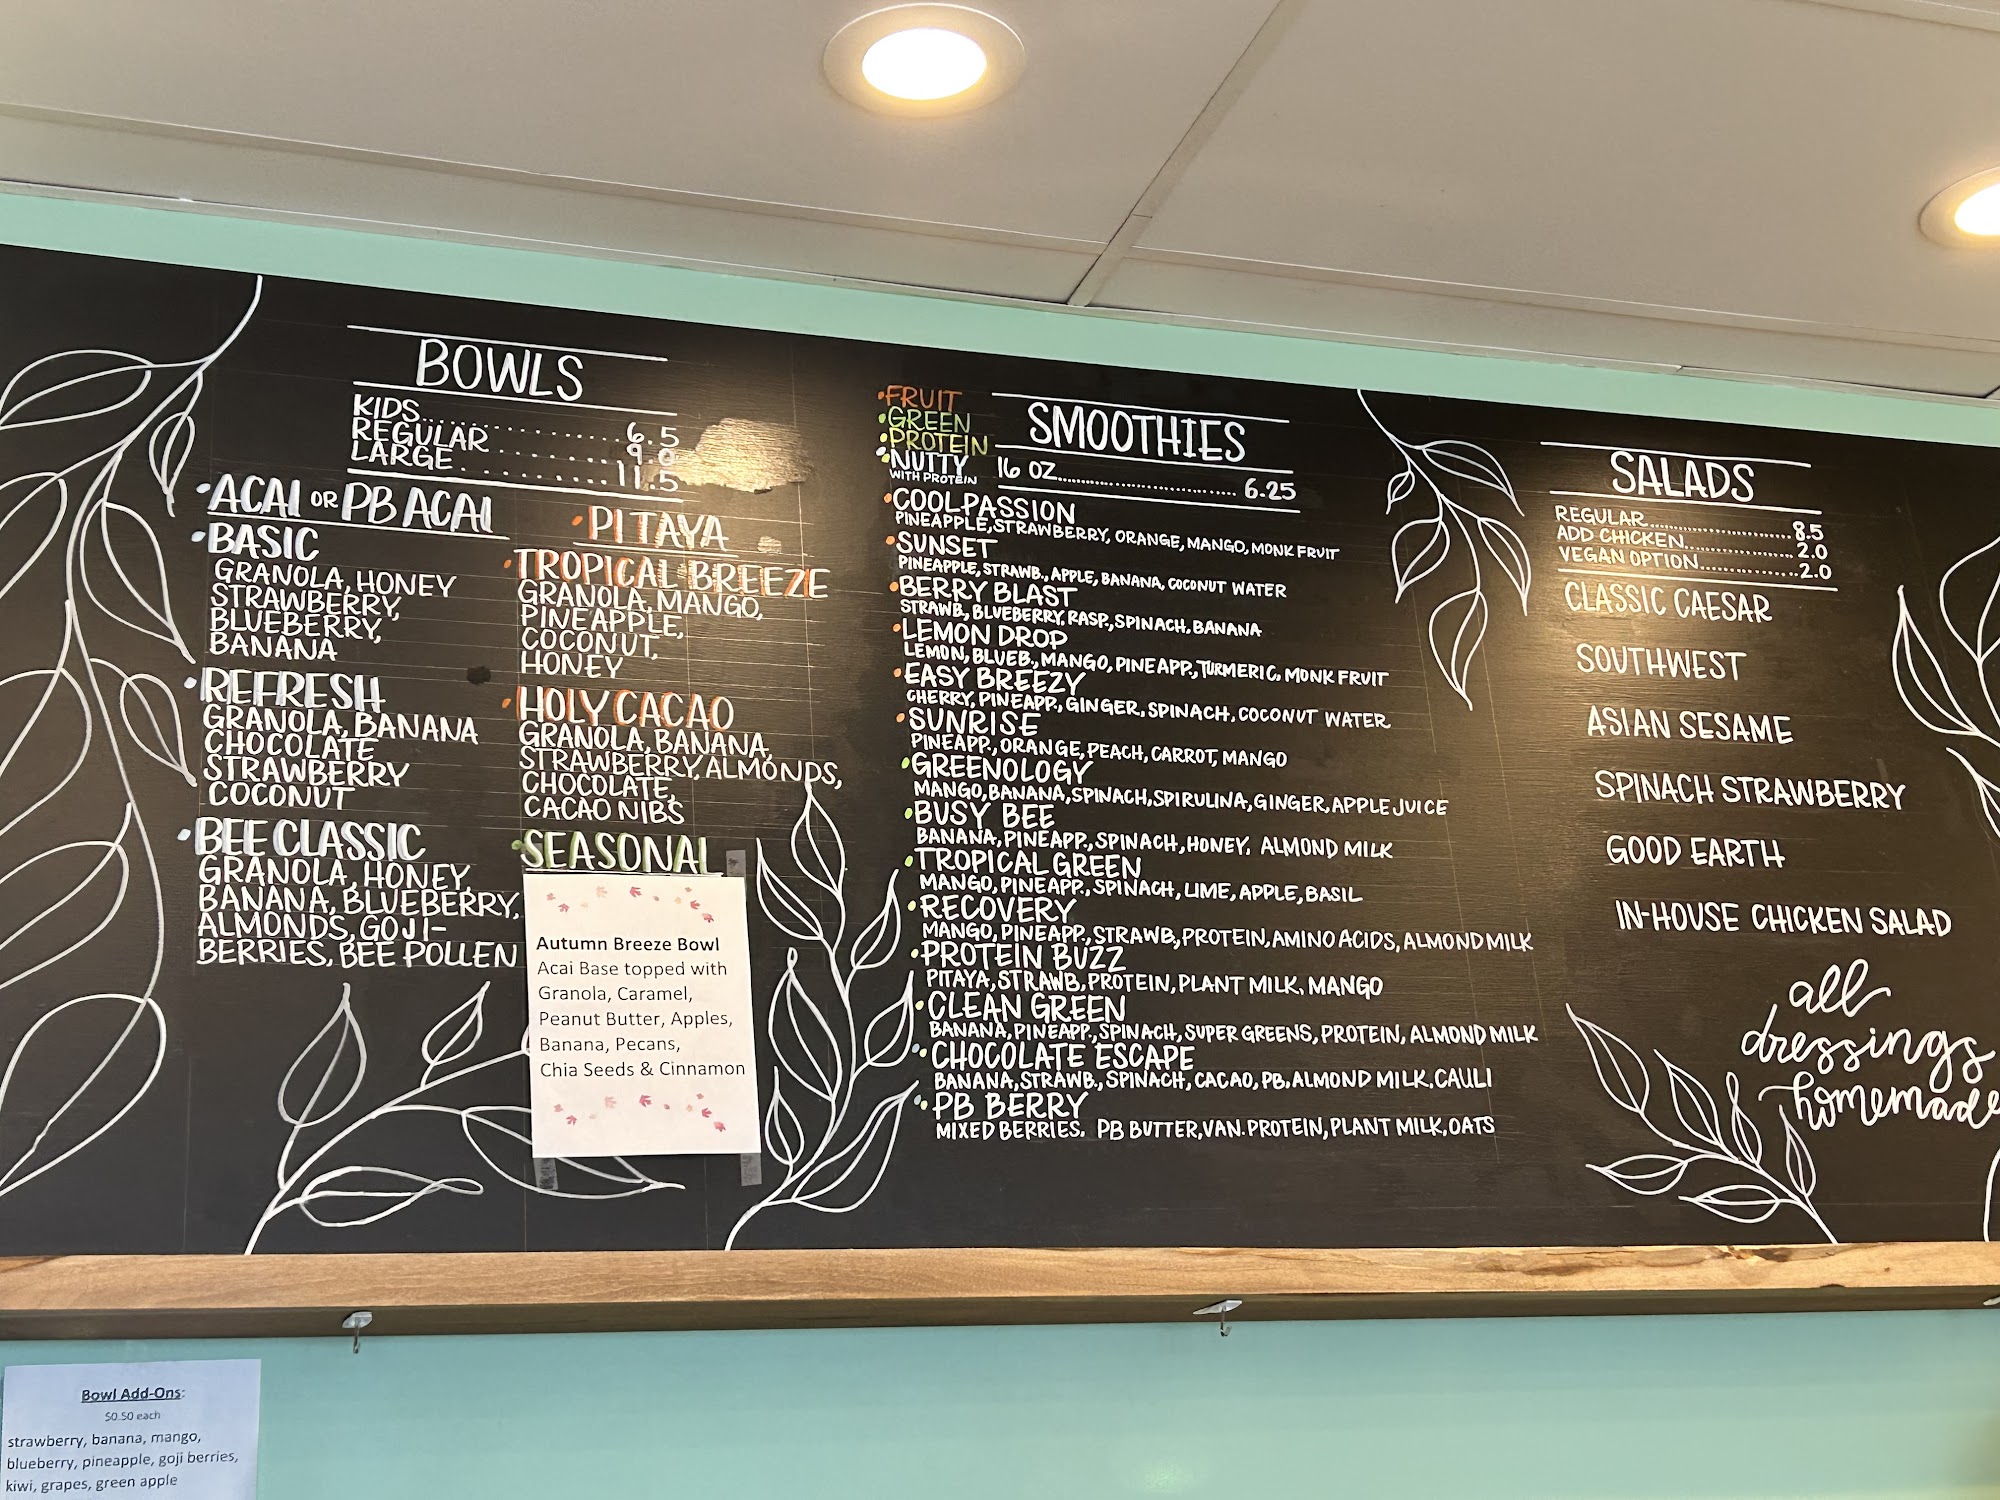 BOWLS
KIDS.................6.5
REGULAR.........9.0
LARGE.............11.5
ACAI OR PB ACAI
BASIC
GRANOLA, HONEY
STRAWBERRY,
BLUEBERRY,
BANANA
REFRESH
GRANOLA, BANANA
CHOCOLATE
STRAWBERRY
COCONUT
BEE CLASSIC
GRANOLA, HONEY,
BANANA, BLUEBERRY,
ALMONDS, GOJI-
BERRIES, BEE POLLEN
PITAYA
TROPICAL BREEZE
GRANOLA, MANGO,
PINEAPPLE,
COCONUT,
HONEY
HOLY CACAO
GRANOLA, BANANA,
STRAWBERRY, ALMONDS,
CHOCOLATE,
CACAO NIBS
SEASONAL
Autumn Breeze Bowl
Acai Base topped with
Granola, Caramel,
Peanut Butter, Apples,
Banana, Pecans,
Chia Seeds & Cinnamon
FRUIT
GREEN
PROTEIN
NUTTY
WITH PROTEIN
SMOOTHIES
16 OZ.......................................6.25
COOLPASSION
PINEAPPLE, STRAWBERRY, ORANGE, MANGO, MONK FRUIT
SUNSET
PINEAPPLE, STRAWB., APPLE, BANANA, COCONUT WATER
BERRY BLAST
STRAWB, BLUEBERRY, RASP., SPINACH, BANANA
LEMON DROP
LEMON, BLUEB., MANGO, PINEAPP., TURMERIC, MONK FRUIT
EASY BREEZY
CHERRY, PINEAPP., GINGER, SPINACH, COCONUT WATER
SUNRISE
PINEAPP., ORANGE, PEACH, CARROT, MANGO
GREENOLOGY
MANGO, BANANA, SPINACH, SPIRULINA, GINGER, APPLE JUICE
BUSY BEE
BANANA, PINEAPP., SPINACH, HONEY, ALMOND MILK
TROPICAL GREEN
MANGO, PINEAPP., SPINACH, LIME, APPLE, BASIL
RECOVERY
MANGO, PINEAPP., STRAWB, PROTEIN, AMINO ACIDS, ALMOND MILK
PROTEIN BUZZ
PITAYA, STRAWB, PROTEIN, PLANT MILK, MANGO
CLEAN GREEN
BANANA, PINEAPP., SPINACH, SUPER GREENS, PROTEIN, ALMOND MILK
CHOCOLATE ESCAPE
BANANA, STRAWB., SPINACH, CACAO, PB, ALMOND MILK, CAULI
PB BERRY
MIXED BERRIES, PB BUTTER, VAN. PROTEIN, PLANT MILK, OATS
SALADS
REGULAR.........................8.5
ADD CHICKEN...................2.0
VEGAN OPTION.................2.0
CLASSIC CAESAR
SOUTHWEST
ASIAN SESAME
SPINACH STRAWBERRY
GOOD EARTH
IN-HOUSE CHICKEN SALAD
all
dressings
homemade
Bowl Add-Ons:
$0.50 each
strawberry, banana, mango,
blueberry, pineapple, goji berries,
kiwi, grapes, green apple